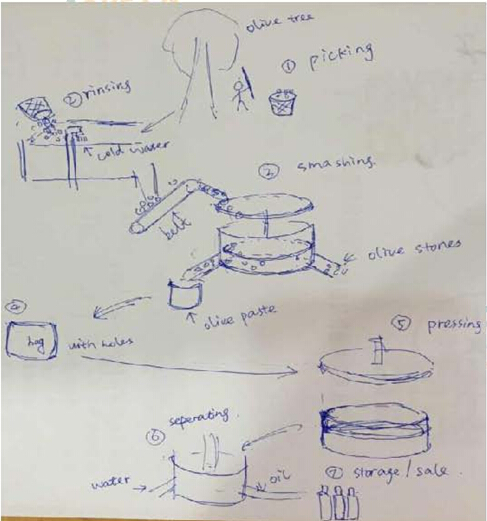 olive tree
① picking
② rinsing
cold water
③ smashing
belt
olive stones
olive paste
④
bag
with holes
⑤ pressing
⑥ seperating.
water
oil
⑦ storage / sale.